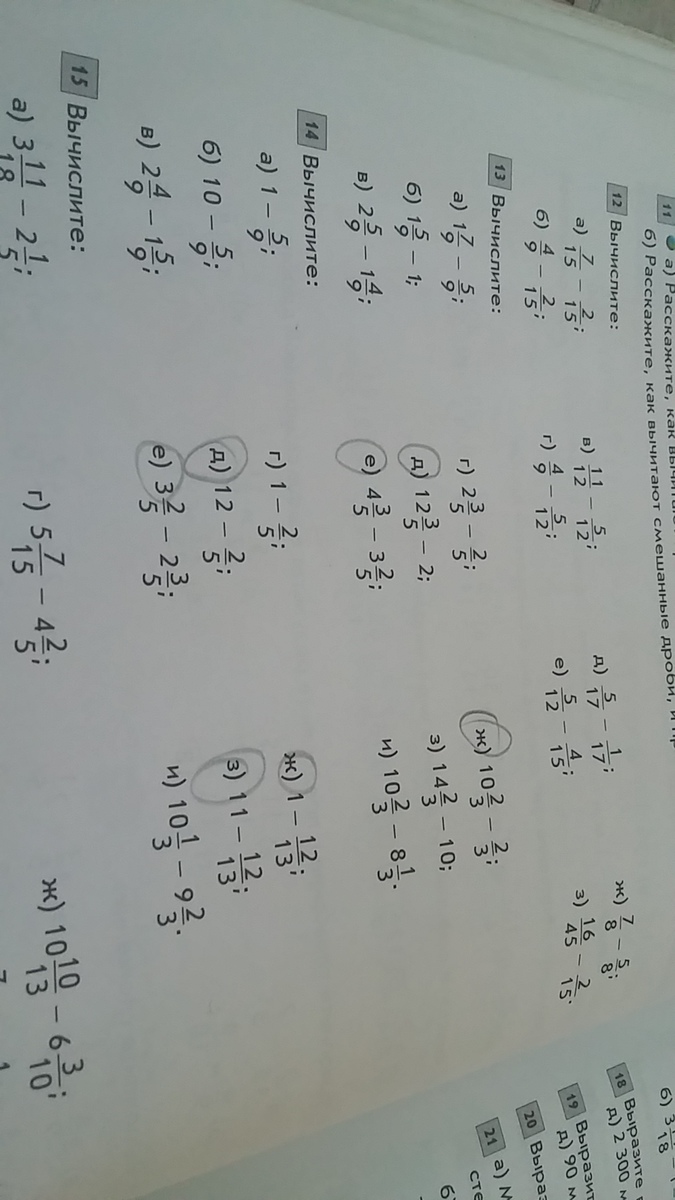 11 а) Расскажите, как вычитают
б) Расскажите, как вычитают смешанные дроби, и пр
12 Вычислите:
а) 7/15 − 2/15; в) 11/12 − 5/12; д) 5/17 − 1/17; ж) 7/8 − 5/8;
б) 4/9 − 2/15; г) 4/9 − 5/12; е) 5/12 − 4/15; з) 16/45 − 2/15.
13 Вычислите:
а) 1 7/9 − 5/9; г) 2 3/5 − 2/5; ж) 10 2/3 − 2/3;
б) 1 5/9 − 1; д) 12 3/5 − 2; з) 14 2/3 − 10;
в) 2 5/9 − 1 4/9; е) 4 3/5 − 3 2/5; и) 10 2/3 − 8 1/3.
14 Вычислите:
а) 1 − 5/9; г) 1 − 2/5; ж) 1 − 12/13;
б) 10 − 5/9; д) 12 − 2/5; з) 11 − 12/13;
в) 2 4/9 − 1 5/9; е) 3 2/5 − 2 3/5; и) 10 1/3 − 9 2/3.
15 Вычислите:
а) 3 11/18 − 2 1/5; г) 5 7/15 − 4 2/5; ж) 10 10/13 − 6 3/10;
18 Выразите
д) 2 300
19 Вырази
д) 90
20 Выра
21 а)
сте